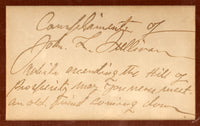 Compliments of
John L. Sullivan
While ascending the Hill of
prosperity may you never meet
an old friend coming down